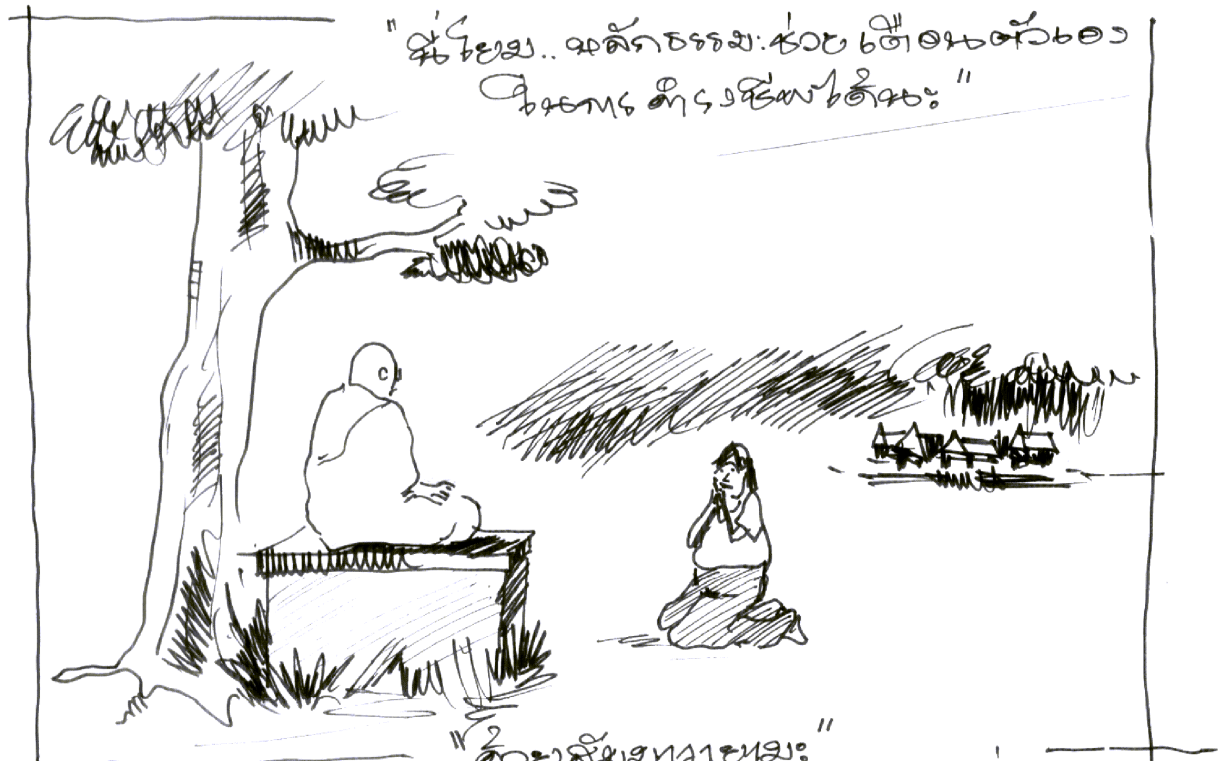 "นี่โยม.. หลักธรรมะช่วยเตือนตัวเอง
ในการดำรงชีพได้นะ"